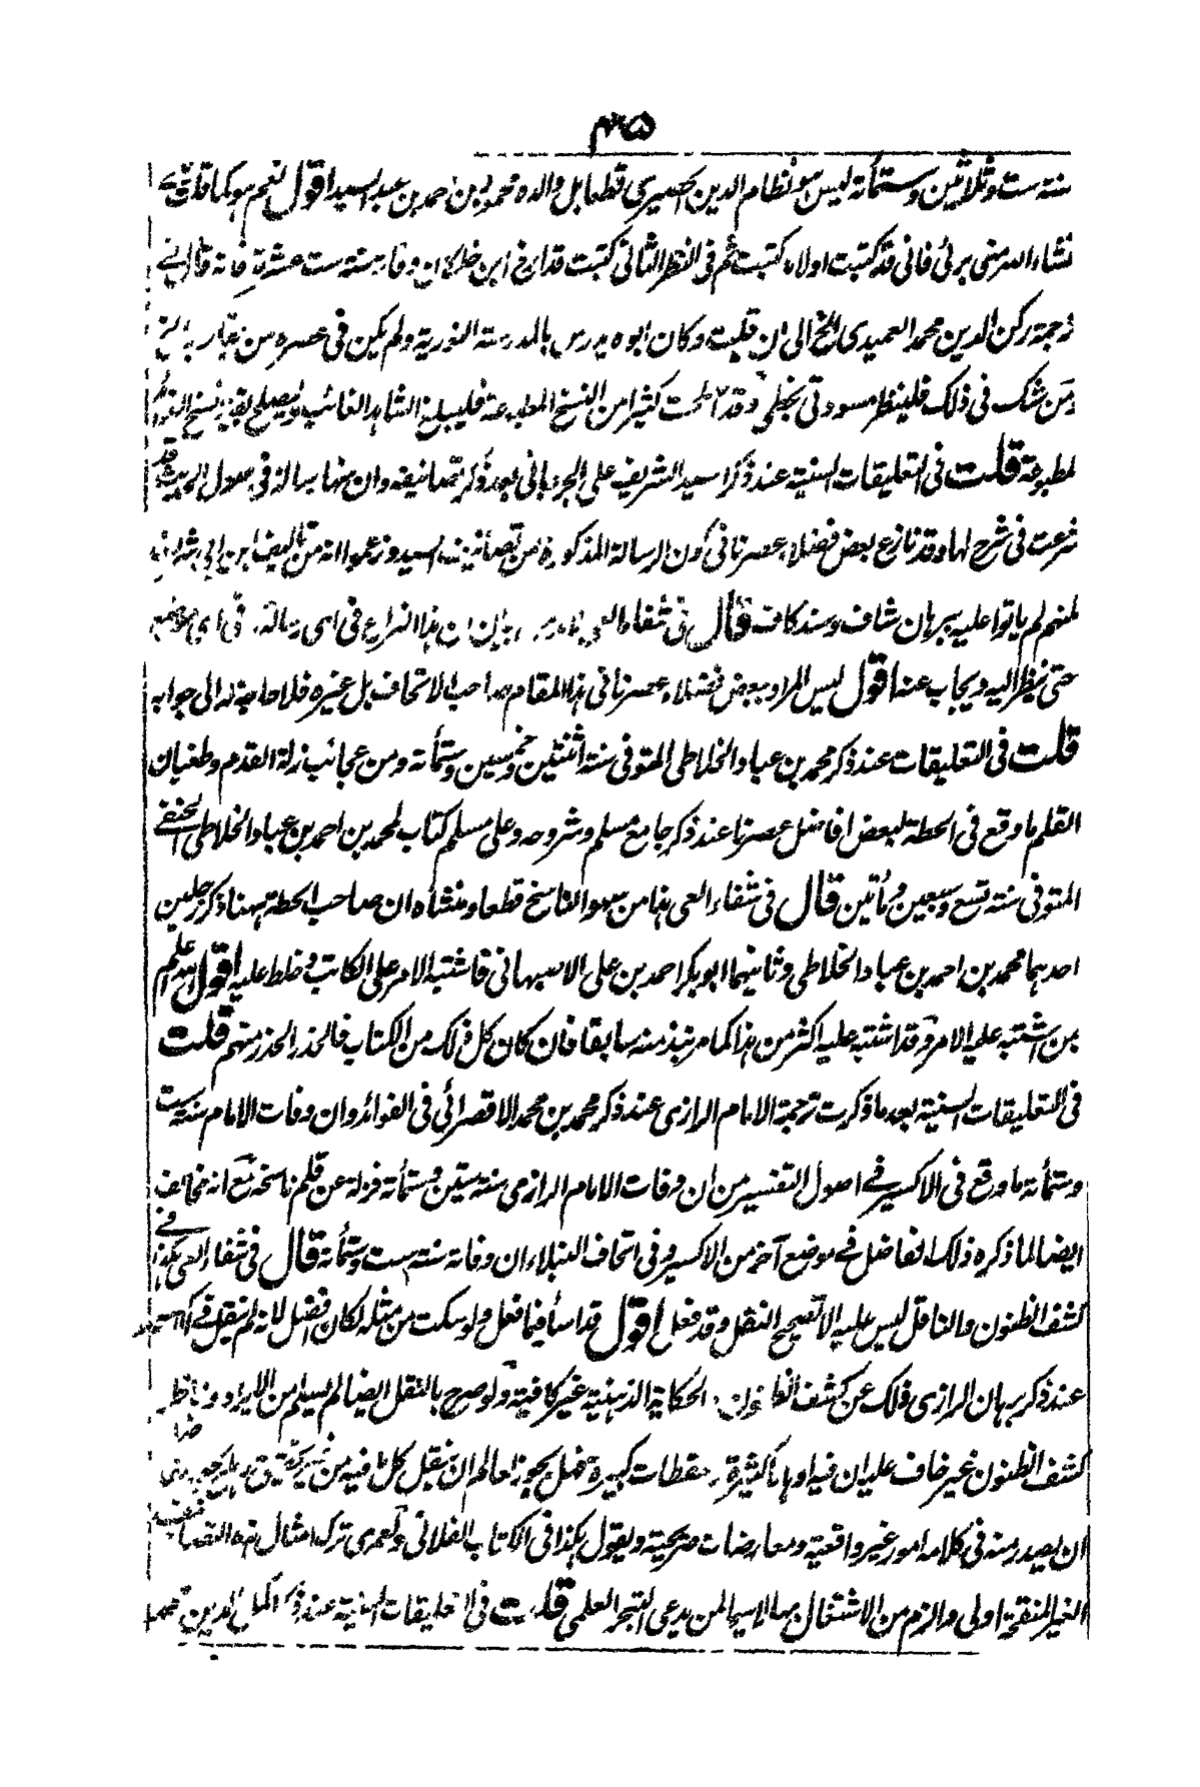 ٣٥
سنة ست وثلاثين وستمائة ليس هو نظام الدين الحصيري قطعا بل والده محمود بن احمد بن عبد السيد اقول نعم هو كما قلت
نشاء الله مني برئ فاني قد كتبت اولا ما كتبت ثم في النظر الثاني كتبت قد ارخ ابن خلكان وفاته سنة ست عشرة فانه قال في
ترجمة ركن الدين محمد العميدي الخ الى ان قلبت وكان ابوه يدرس بالمدرسة النورية ولم يكن في عصره من يقاربه الخ
ومن شك في ذلك فلينظر مسودتي بخطي وقد كثيرا من النسخ المطبوعة فليبلغ الشاهد الغائب وليصلح بقية نسخ
المطبوعة قلت في التعليقات السنية عند ذكر السيد الشريف علي الجرجاني بعد ذكر تصانيفه وان منها رسالة في اصول الحديث
شرعت في شرح لها وقد نازع بعض فضلاء عصرنا في كون الرسالة المذكورة من تصانيف السيد وزعموا انه من تاليف ابن ابي
لمنهم لم ياتوا عليه ببرهان شاف وسند كاف قال في شفاء العي ان هذا النزاع في اي رسالة في اي موضع
حتى ينظر اليه ويجاب عنه اقول ليس المراد ببعض فضلاء عصرنا في هذا المقام صاحب الاتحاف بل غيره فلا حاجة له الى جوابه
قلت في التعليقات عند ذكر محمد بن عباد الخلاطي المتوفى سنة اثنتين وخمسين وستمائة ومن عجائب زلة القدم وطغيان
القلم ما وقع في الحطة لبعض افاضل عصرنا عند ذكر جامع مسلم وشروحه وعلى مسلم كتاب لمحمد بن احمد بن عباد الخلاطي الحنفي
المتوفى سنة تسع وسبعين ومأتين قال في شفاء العي هذا من سهو الناسخ قطعا ومنشاه ان صاحب الحطة ههنا ذكر رجلين
احدهما محمد بن احمد بن عباد الخلاطي وثانيهما ابو بكر احمد بن علي الاصبهاني فاشتبه الامر على الكاتب وخلط عليه اقول الله اعلم
بمن اشتبه عليه الامر وقد اشتبه عليه اكثر من هذا كما مر نبذ منه سابقا فان كان كل ذلك من الكتاب فالحذر الحذر منهم قلت
في التعليقات السنية بعد ما ذكرت ترجمة الامام الرازي عند ذكر محمد بن محمد الاقصرائي في الفوائد وان وفات الامام سنة ست
وستمائة ما وقع في الاكسير في اصول التفسير من ان وفات الامام الرازي سنة ستين وستمائة فزلة عن قلم ناسخه مع انه مخالف
ايضا لما ذكره ذلك الفاضل في موضع آخر من الاكسير وفي اتحاف النبلاء ان وفاته سنة ست وستمائة قال في شفاء العي هكذا في
كشف الظنون والناقل ليس عليه الا تصحيح النقل وقد فعل اقول قد اسأ فيما فعل ولو سكت من مثله لكان افضل لانه لم ينقل في
عند ذكر برهان الرازي ذلك عن كشف الظنون والحكاية الذهنية غير كافية ولو صرح بالنقل ايضا لم يسلم من الايراد وناظر
كشف الظنون غير خاف عليه ان فيه اوهاما كثيرة وسقطات كبيرة فهل يجوز لعالم ان ينقل كل ما فيه من غير
ان يصدر منه في كلامه امور غير واقعية ومعارضات صريحية ويقول هكذا في الكتاب الفلاني ولعمري ترك امثال هذه
الغير المنقحة اولى والزم من الاشتغال بها لا سيما لمن يدعي التبحر العلمي قلت في التعليقات السنية عند ذكر اكمل الدين محمد